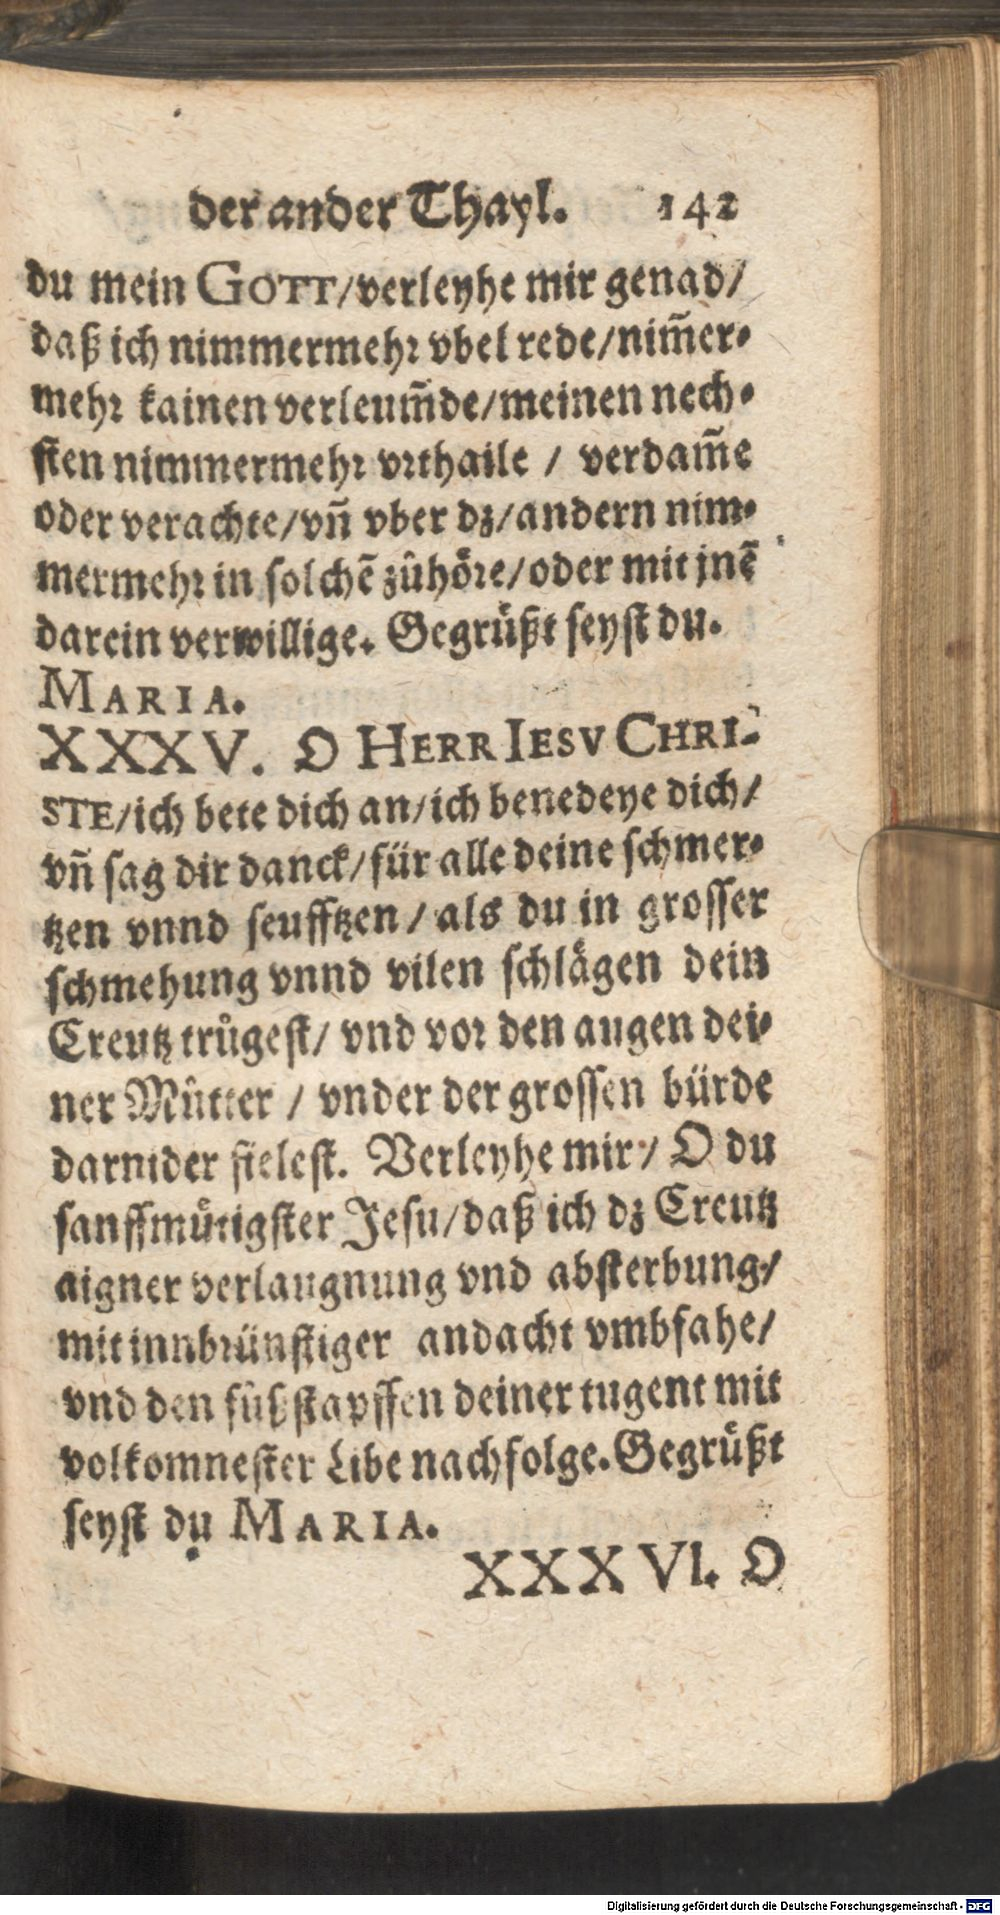 der ander Thayl. 142
du mein GOTT/verleyhe mir genad/
daß ich nimmermehr vbel rede/nim̃er-
mehr kainen verleum̃de/meinen nech-
sten nimmermehr vrthaile / verdam̃e
oder verachte/vñ vber dz/andern nim-
mermehr in solchẽ zůhöre/oder mit jnẽ
darein verwillige. Gegrüßt seyst du.
MARIA.
XXXV. O HERR IESV CHRI-
STE/ich bete dich an/ich benedeye dich/
vñ sag dir danck/für alle deine schmer-
tzen vnnd seufftzen/als du in grosser
schmehung vnnd vilen schlägen dein
Creutz trůgest/ vnd vor den augen dei-
ner Můtter / vnder der grossen bürde
darnider fielest. Verleyhe mir/ O du
sanffmütigster Jesu/daß ich dz Creutz
aigner verlaugnung vnd absterbung/
mit innbrünstiger andacht vmbfahe/
vnd den fůßstapffen deiner tugent mit
volkomnester Libe nachfolge. Gegrüßt
seyst du MARIA.
XXXVI. O
Digitalisierung gefördert durch die Deutsche Forschungsgemeinschaft - DFG